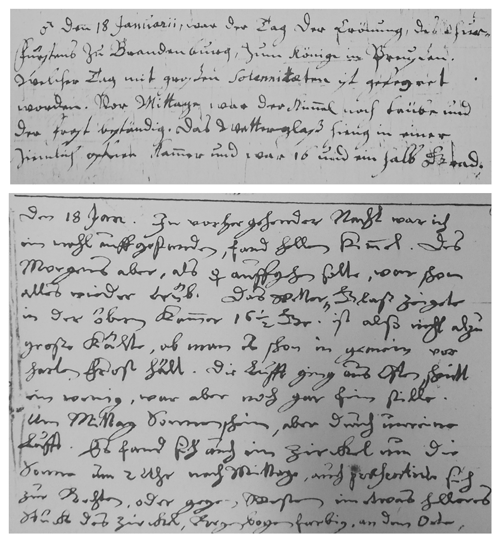 ♂ Den 18 Januarii, war der Tag der Crönung, des Chur-
fürstens zu Brandenburg, zum Könige in Preußen.
Welcher Tag mit großen Solemnitäten ist gefeyret
worden. Vor Mittage, war der Himmel noch trübe und
der frost beständig. Das Wetterglaß hieng in einer
ziemlich Kammer und war 16 und ein halb Grad.
Den 18 Jan. In vorhergehender Nacht war ich
ein mahl auffgestanden, fand hellen Himmel. Des
Morgens aber, als ♀ auffgehen solte, war schon
alles wieder trüb. Das Wetter Glaß zeigete
in der öbern Kammer 16 1/2 Gr. ist alß nicht allzu
große Kälte, ob man es schon in gemein vor
harten Frost hält. Die Lufft ging aus Osten,
ein wenig, war aber noch gar fein stille.
Um Mittag Sonnenschein, aber durch unreine
Lufft. Es fand sich auch ein Zirckel um die
Sonne um 2 Uhr nach Mittage, auch sich
zur Rechten, oder gegen Westen ein etwas helleres
Stück des Zirckel, Regenbogenfarbig, an dem Orte,